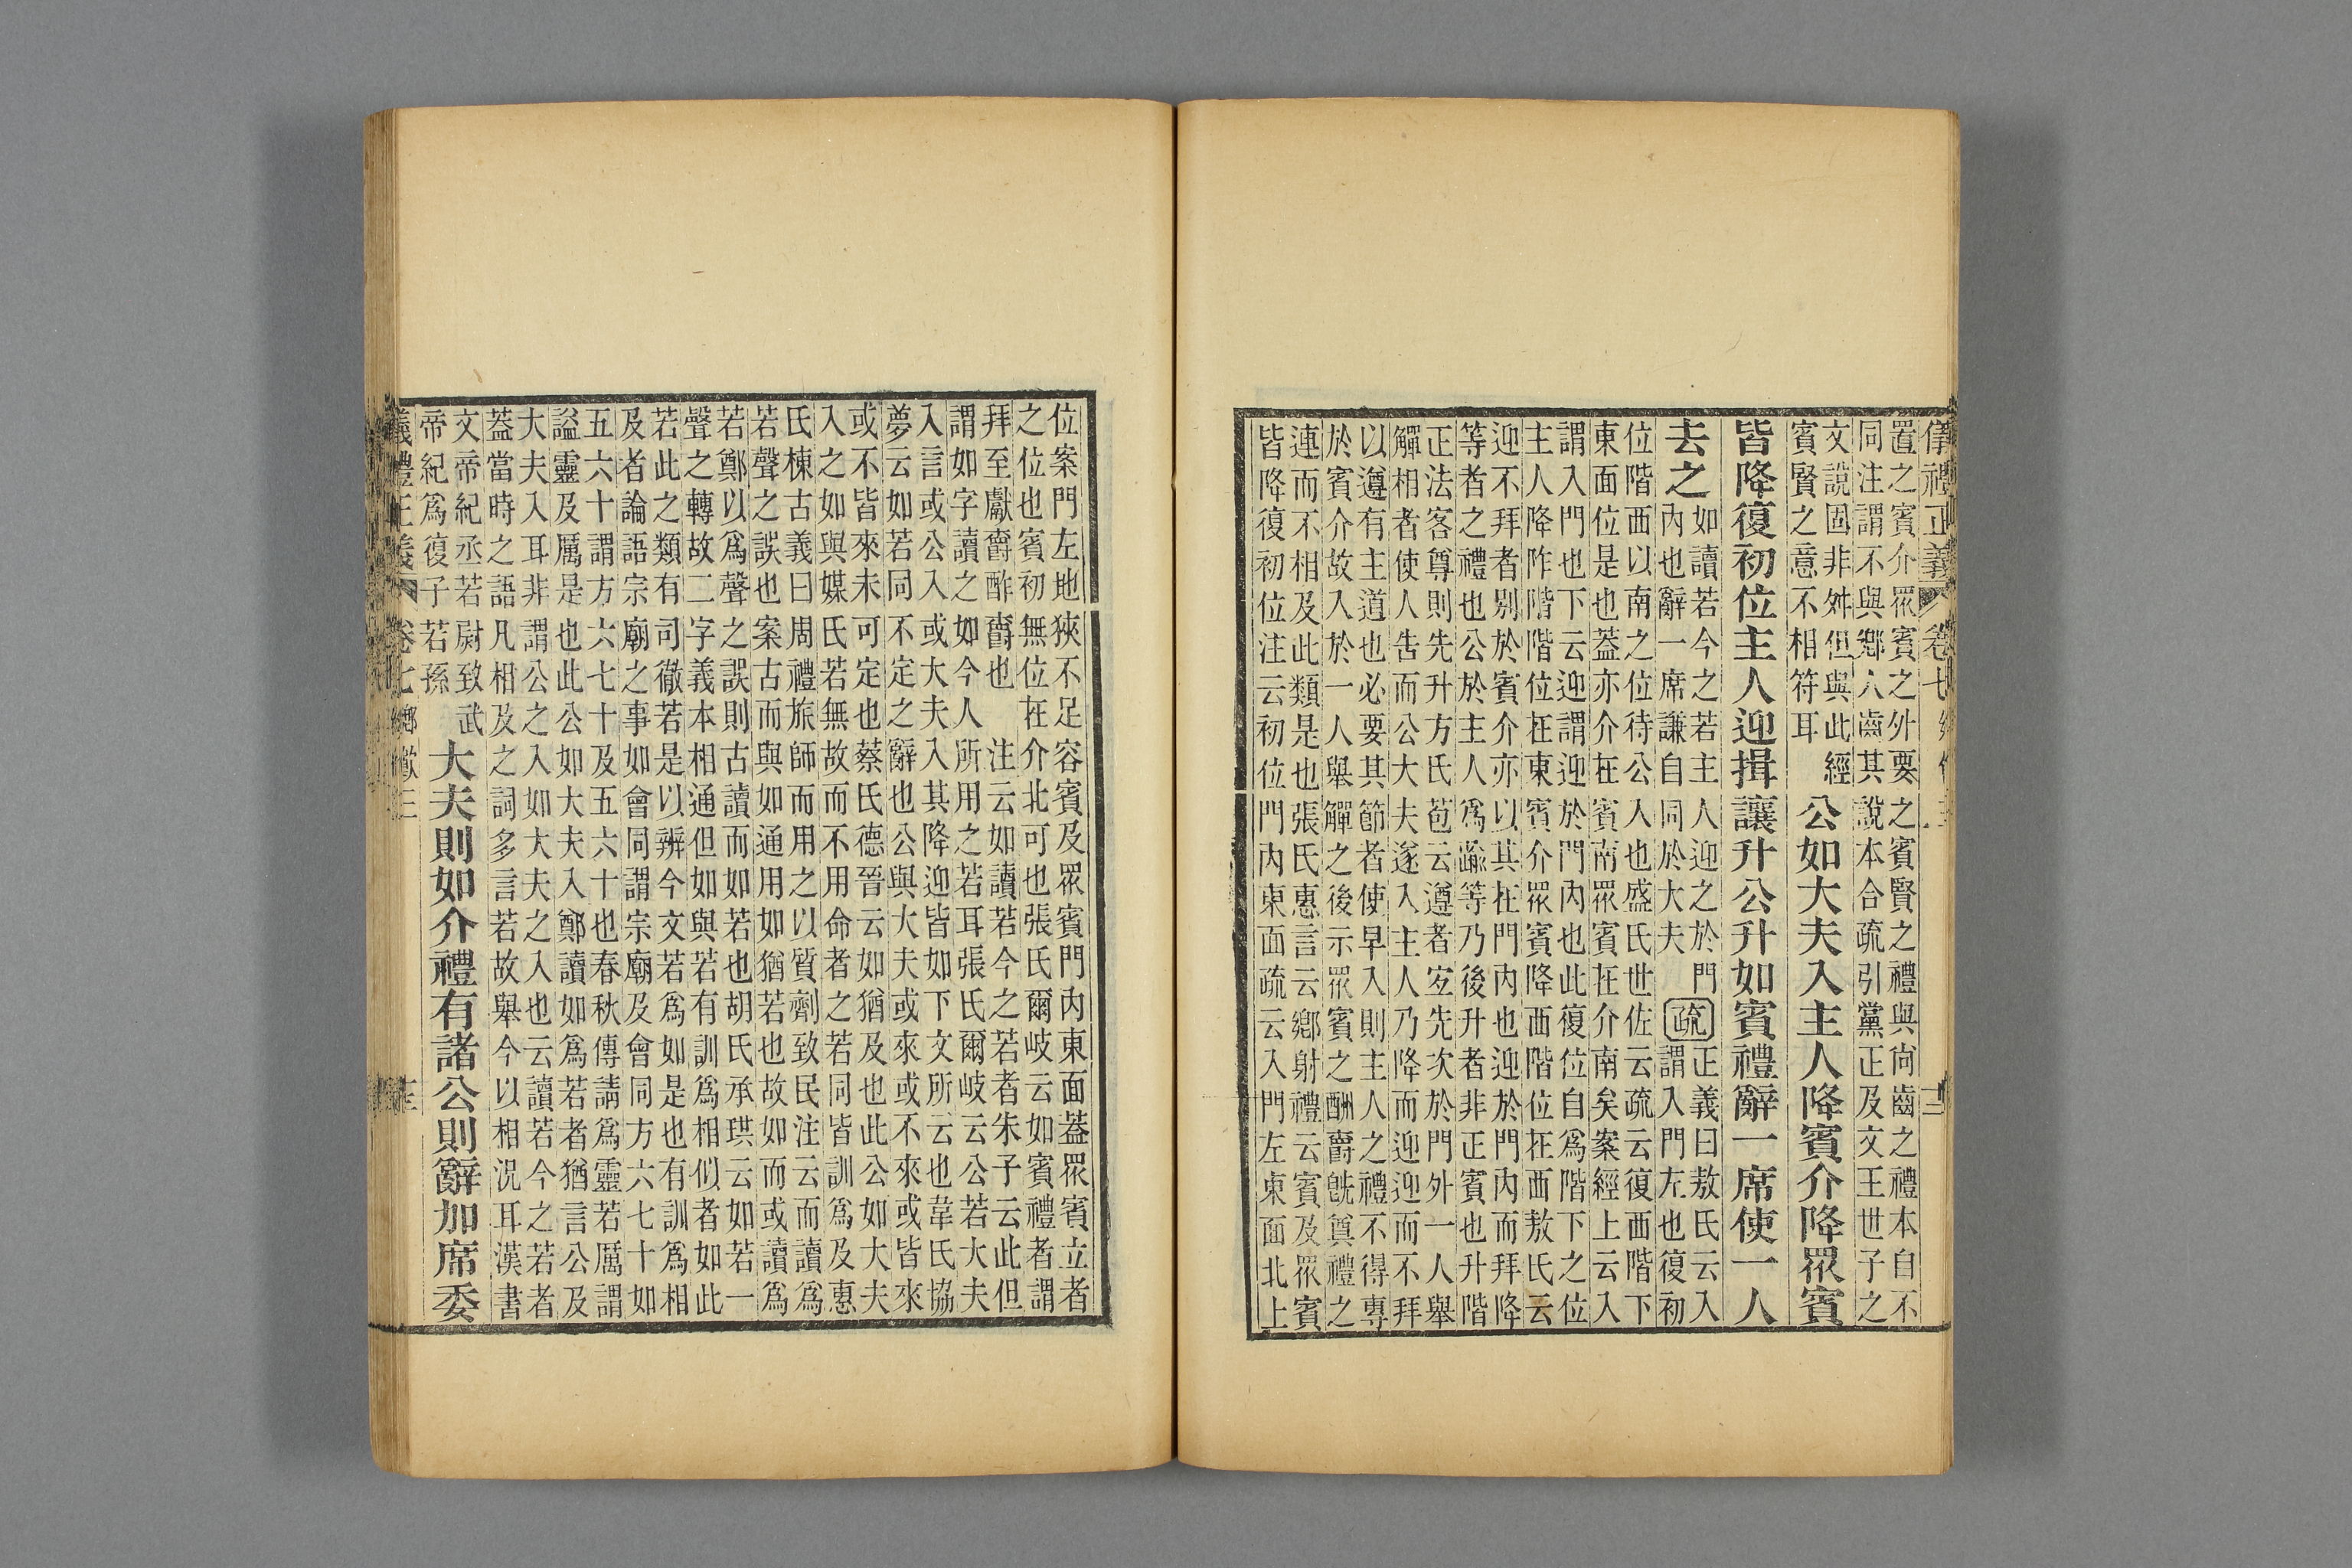 儀禮正義 卷七 十三
置之賓介眾賓之外要之賓賢之禮與尙齒之禮本自不
同注謂不與鄉人齒其說本合疏引黨正及文王世子之
文說固非舛但與此經
賓賢之意不相符耳
公如大夫入主人降賓介降眾賓
皆降復初位主人迎揖讓升公升如賓禮辭一席使一人
去之
如讀若今之若主人迎之於門
內也辭一席謙自同於大夫
疏
正義曰敖氏云入
謂入門左也復初
位階西以南之位待公入也盛氏世佐云疏云復西階下
東面位是也蓋亦介在賓南眾賓在介南矣案經上云入
謂入門也下云迎謂迎於門內也此復位自爲階下之位
主人降阼階階位在東賓介眾賓降西階位在西敖氏云
迎不拜者別於賓介亦以其在門內也迎於門內而拜降
等者之禮也公於主人爲踰等乃後升者非正賓也升階
正法客尊則先升方氏苞云遵者宐先次於門外一人舉
觶相者使人告而公大夫遂入主人乃降而迎迎而不拜
以遵有主道也必要其節者使早入則主人之禮不得專
於賓介故入於一人舉觶之後示眾賓之酬爵旣奠禮之
連而不相及此類是也張氏惠言云鄉射禮云賓及眾賓
皆降復初位注云初位門內東面疏云入門左東面北上
位案門左地狹不足容賓及眾賓門內東面蓋眾賓立者
之位也賓初無位在介北可也張氏爾岐云如賓禮者謂
拜至獻爵酢爵也 注云如讀若今之若者朱子云此但
謂如字讀之如今人所用之若耳張氏爾岐云公若大夫
入言或公入或大夫入其降迎皆如下文所云也韋氏協
夢云如若同不定之辭也公與大夫或來或不來或皆來
或不皆來未可定也蔡氏德晉云如猶及也此公如大夫
入之如與媒氏若無故而不用命者之若同皆訓爲及惠
氏棟古義曰周禮旅師而用之以質劑致民注云而讀爲
若聲之誤也案古而與如通用如猶若也故如而或讀爲
若鄭以爲聲之誤則古讀而如若也胡氏承珙云如若一
聲之轉故二字義本相通但如與若有訓爲相似者如此
若此之類有司徹若是以辨今文若爲如是也有訓爲相
及者論語宗廟之事如會同謂宗廟及會同方六七十如
五六十謂方六七十及五六十也春秋傳請爲靈若厲謂
謚靈及厲是也此公如大夫入鄭讀如爲若者猶言公及
大夫入耳非謂公之入如大夫之入也云讀若今之若者
蓋當時之語凡相及之詞多言若故舉今以相況耳漢書
文帝紀丞若尉致武
帝紀爲復子若孫
大夫則如介禮有諸公則辭加席委
儀禮正義 卷七 鄉飲三 十三